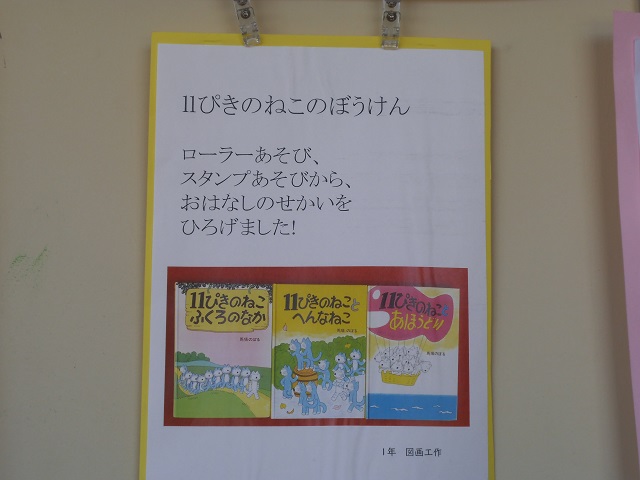 11ぴきのねこのぼうけん
ローラーあそび、
スタンプあそびから、
おはなしのせかいを
ひろげました!
11ぴきのねこ
ふくろのなか
馬場のぼる
11ぴきのねこと
へんなねこ
馬場のぼる
11ぴきのねこと
あほうどり
馬場のぼる
1年 図画工作